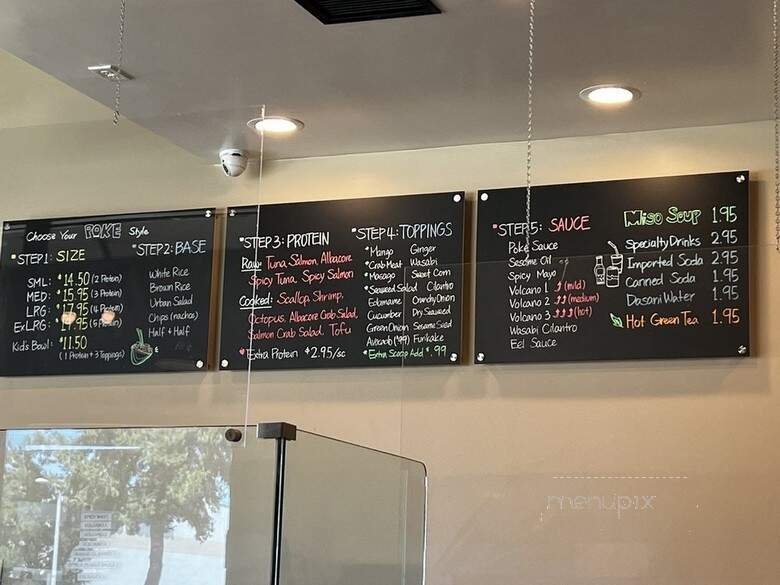 Choose Your POKE Style
*STEP 1: SIZE
SML: $14.50 (2 Protein)
MED: $15.95 (3 Protein)
LRG: $17.95 (4
EXLRG: (5
Kid's Bowl: $11.50
(1 Protein + 3 Toppings)
*STEP 2: BASE
White Rice
Brown Rice
Urban Salad
Chips (nachos)
Half + Half
*STEP 3: PROTEIN
Raw: Tuna, Salmon, Albacore
Spicy Tuna, Spicy Salmon
Cooked: Scallop, Shrimp,
Octopus, Albacore Crab Salad,
Salmon Crab Salad, Tofu
Extra Protein $2.95/sc
*STEP 4: TOPPINGS
*Mango Ginger
*Crab Meat Wasabi
*Masago Sweet Corn
*Seaweed Salad Cilantro
Edamame Crunchy Onion
Cucumber Dry Seaweed
Green Onion Sesame Seed
Avocado (.99) Furikake
*Extra Scoop Add $.99
*STEP 5: SAUCE
Poke Sauce
Sesame Oil
Spicy Mayo
Volcano 1 (mild)
Volcano 2 (medium)
Volcano 3 (hot)
Wasabi Cilantro
Eel Sauce
Miso Soup 1.95
Specialty Drinks 2.95
Imported Soda 2.95
Canned Soda 1.95
Dasani Water 1.95
Hot Green Tea 1.95
menupix